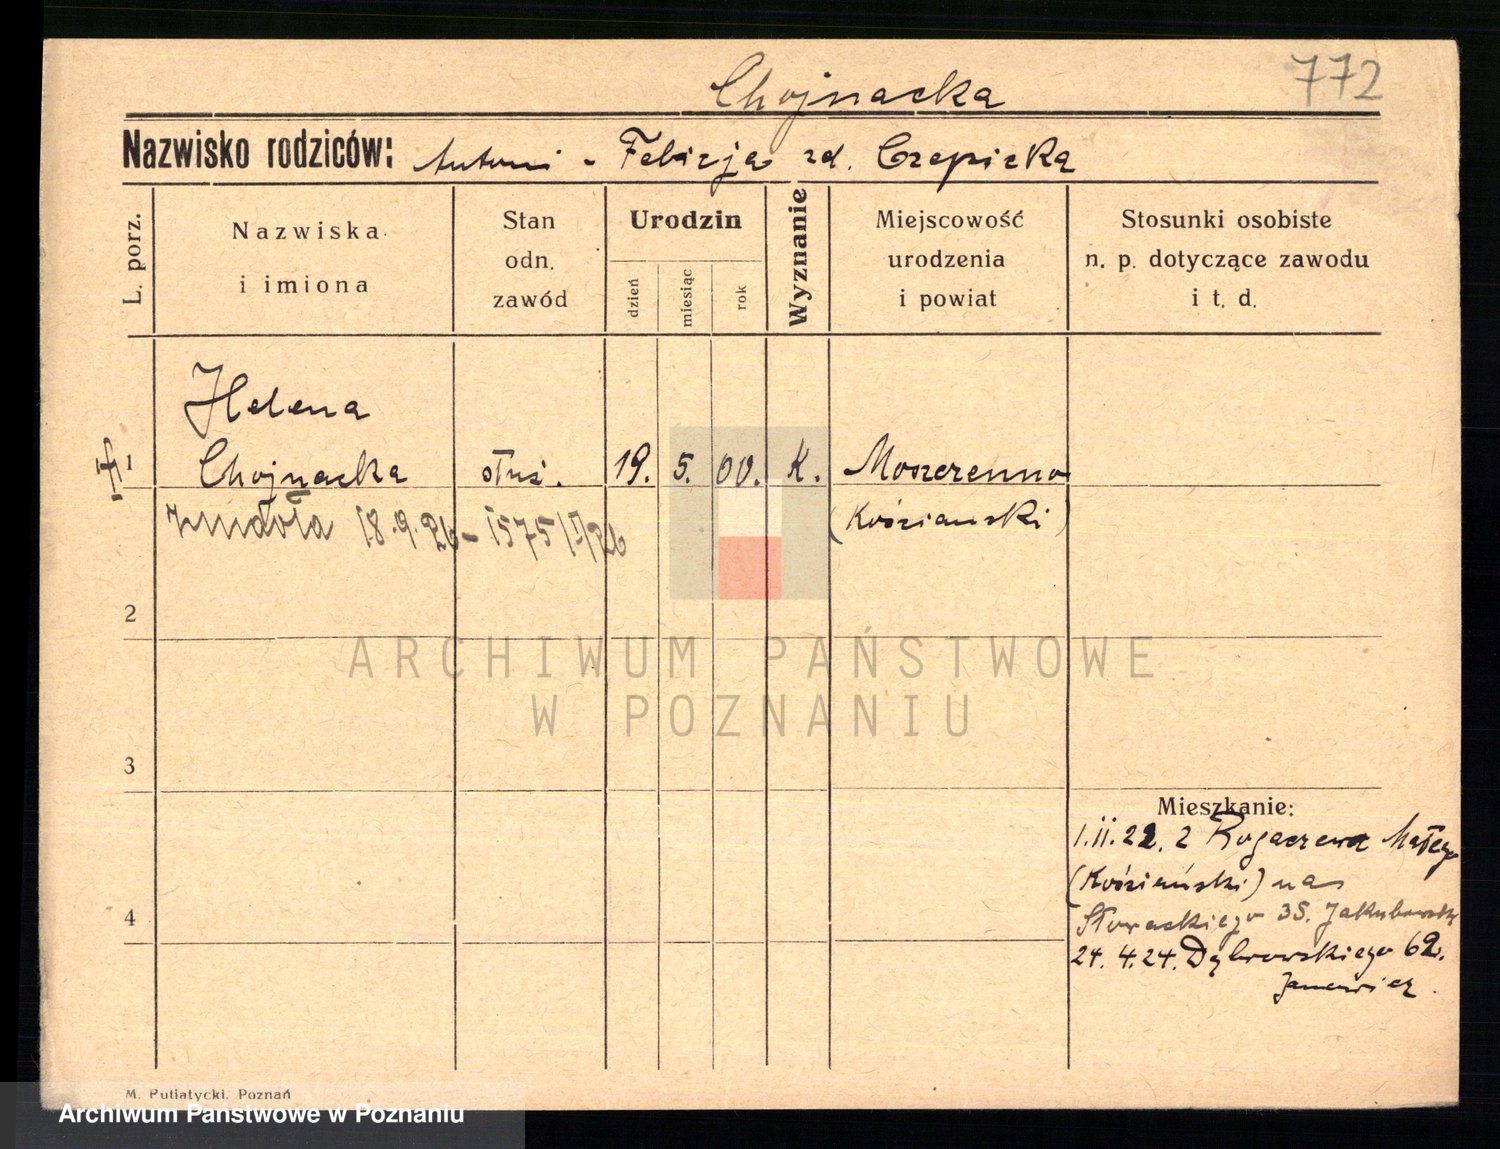 Chojnacka 772
Nazwisko rodziców: Antoni - Felicja zd. Czepicka
L. porz.
Nazwiska
i imiona
Stan
odn.
zawód
Urodzin
dzień
miesiąc
rok
Wyznanie
Miejscowość
urodzenia
i powiat
Stosunki osobiste
n. p. dotyczące zawodu
i t. d.
Helena
1 Chojnacka służ. 19. 5. 00. K. Moszczenno
(Kościański)
18.9.26 - 1575
2
3
4
Mieszkanie:
1.11.22. z Rogaczewa Małego
(Kościański) na
Słowackiego 35. Jakubowski
24.4.24. Dąbrowskiego 62.
M. Putiatycki. Poznań
ARCHIWUM PAŃSTWOWE
W POZNANIU
Archiwum Państwowe w Poznaniu